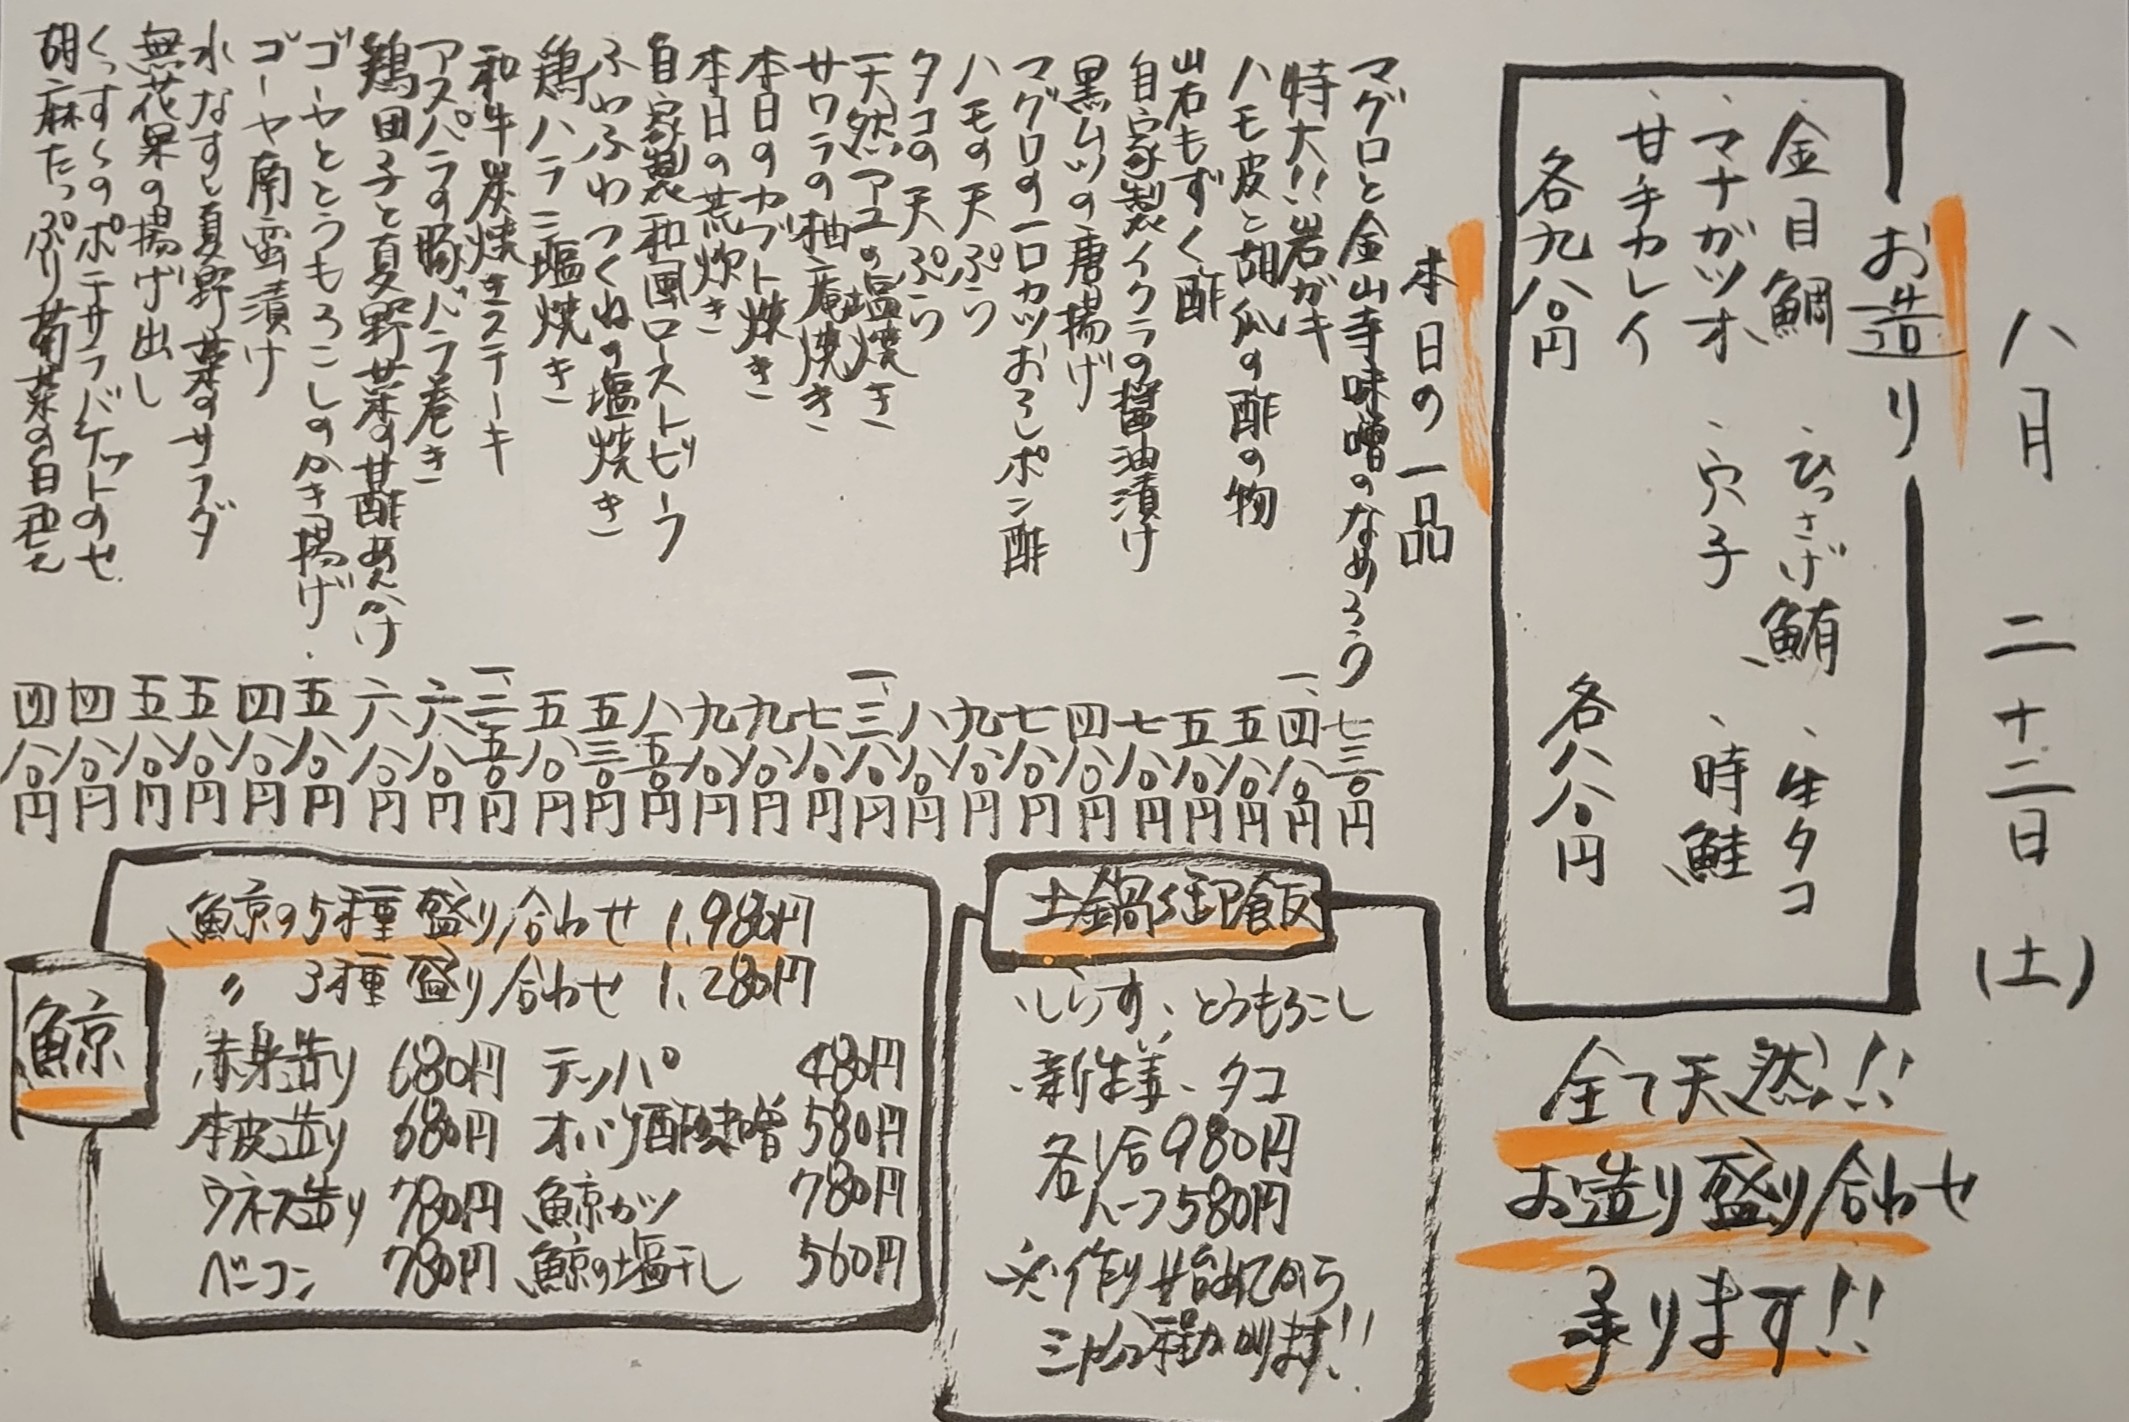 八月 二十二日 (土)
お造り
、金目鯛 、ひっさげ鮪 、生タコ
、マナガツオ 、穴子 、時鮭
、甘手カレイ
各九八〇円 各八八〇円
全て天然!!
お造り盛り合わせ
承ります!!
本日の一品
マグロと金山寺味噌のなめろう 七三〇円
特大!!岩ガキ 一、四八〇円
ハモ皮と胡瓜の酢の物 五八〇円
岩もずく酢 五八〇円
自家製イクラの醤油漬け 七八〇円
黒ムツの唐揚げ 四八〇円
マグロの一口カツおろしポン酢 七八〇円
ハモの天ぷら 九八〇円
タコの天ぷら 八八〇円
天然アユの塩焼き 一、三八〇円
サワラの柚庵焼き 七八〇円
本日のカブト焼き 九八〇円
本日の荒炊き 九八〇円
自家製和風ローストビーフ 八五〇円
ふわふわつくねの塩焼き 五三〇円
鶏ハラミ塩焼き 五八〇円
和牛炭焼きステーキ 一、二五〇円
アスパラの豚バラ巻き 六八〇円
鶏団子と夏野菜の甘酢あんかけ 六八〇円
ゴーヤととうもろこしのかき揚げ 五八〇円
ゴーヤ南蛮漬け 四八〇円
水なすと夏野菜のサラダ 五八〇円
無花果の揚げ出し 五八〇円
くっすくのポテサラバケットのせ 四八〇円
胡麻たっぷり菊菜の白和え 四八〇円
土鍋御飯
、しらす、とうもろこし
、新生姜、タコ
各1合980円
ハーフ580円
※作り始めてから
三十分程かかります!!
鯨
鯨の5種盛り合わせ 1,980円
〃 3種盛り合わせ 1,280円
赤身造り 680円 テッパ 480円
本皮造り 680円 オバケ酢味噌 580円
ウネス造り 780円 鯨カツ 780円
ベーコン 780円 鯨の塩干し 560円